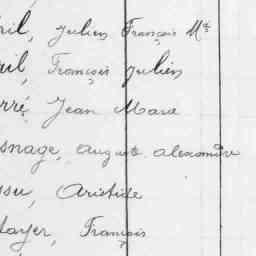 ril, Julien François Mie
ril, François Julien
rré, Jean Marie
snage, Auguste Alexandre
ssu, Aristide
layer, François